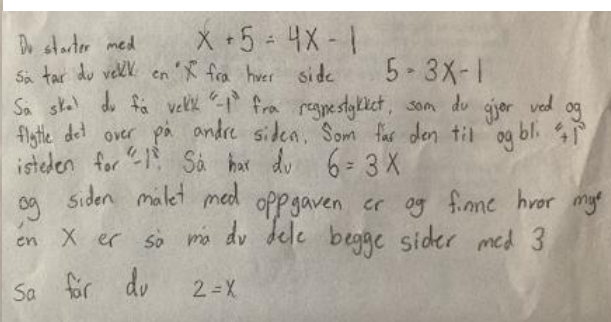 Du starter med x + 5 = 4x - 1
Så tar du vekk en "X" fra hver side 5 = 3x - 1
Så skal du få vekk "-1" fra regnestykket, som du gjør ved og
flytte det over på andre siden. Som får den til og bli "+1"
isteden for "-1". Så har du 6 = 3X
og siden målet med oppgaven er og finne hvor mye
én X er så må du dele begge sider med 3
Så får du 2 = X